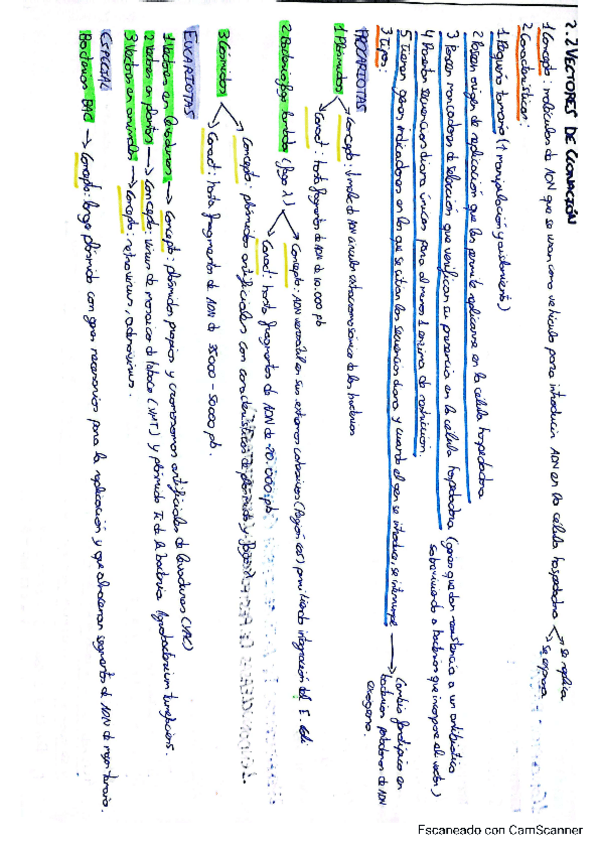 2.2 VECTORES DE CLONACIÓN
1. Concepto: moléculas de ADN que se usan como vehículo para introducir ADN en la célula hospedadora → se replica
→ se expresa
2. Características:
1. Pequeño tamaño (↑ manipulación y aislamiento)
2. Poseen origen de replicación que les permite replicarse en la célula hospedadora
3. Poseen marcadores de selección que verifican su presencia en la célula hospedadora (genes que dan resistencia a un antibiótico
sobreviviendo a bacterias que incorpore el vector)
4. Presentan secuencias diana únicas para al menos 1 enzima de restricción.
5. Tienen genes indicadores en los que se sitúan las secuencias diana y cuando el gen se introduce, se interrumpe → Cambio fenotípico en
bacterias portadoras de ADN
exógeno.
3. Tipos:
PROCARIOTAS
1. Plásmidos → Concepto: molc de ADN circular extracromosómico de las bacterias
→ Caract: hasta fragmentos de ADN de 10.000 pb
2. Bacteriófago lambda (fago λ) → Concepto: ADN en sus extremos cohesivos (Región cos) permitiendo integración del E. coli
→ Caract: hasta fragmentos de ADN de 20.000 pb
3. Cósmidos → Concepto: plásmidos artificiales con características de plásmido y fago λ
→ Caract: hasta fragmentos de ADN de 35000 - 50000 pb.
EUCARIOTAS
1. Vectores en levaduras → Concepto: plásmidos propios y cromosomas artificiales de levaduras (YAC)
2. Vectores en plantas → Concepto: virus de mosaico del tabaco (VMT) y plásmido Ti de la bacteria Agrobacterium tumefaciens.
3. Vectores en animales → Concepto: retrovirus, adenovirus.
ESPECIAL
Bacterianos BAC → Concepto: largo plásmido con genes necesarios para la replicación y que almacenan segmentos de ADN de mayor tamaño.
Escaneado con CamScanner